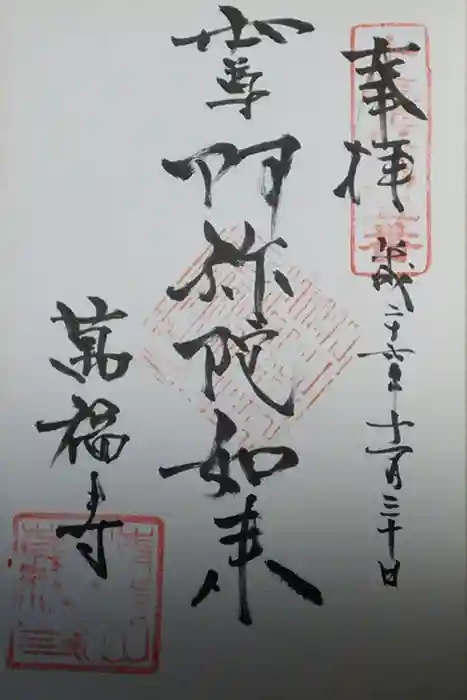 奉拝
平成二十六年十一月三十日
世尊 阿弥陀如来
萬福寺